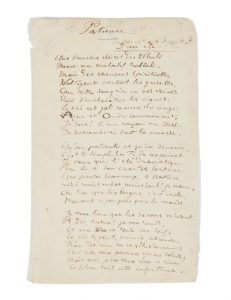 Patience
D'un été.
Aux branches claires des tilleuls
Meurt un maladif hallali.
Mais des chansons spirituelles
Voltigent partout les groseilles.
Que notre sang rie en nos veines
Voici s'enchevêtrer les vignes.
Le ciel est joli comme un ange
Azur et Onde communient.
Je sors! Si un rayon me blesse
Je succomberai sur la mousse.
Qu'on patiente et qu'on s'ennuie,
C'est si simple! Fi de ces peines!
Je veux que l'été dramatique
Me lie à son char de fortune.
Que par toi beaucoup, ô Nature,
Ah! moins nul et moins seul! je meure,
Au lieu que les bergers, c'est drôle,
Meurent à peu près par le monde.
Je veux bien que les saisons m'usent.
A Toi, Nature! je me rends,
Et ma faim et toute ma soif;
Et s'il te plaît, nourris, abreuve.
Rien de rien ne m'illusionne:
C'est rire aux parents qu'au soleil;
Mais moi je ne veux rire à rien
Et libre soit cette infortune.